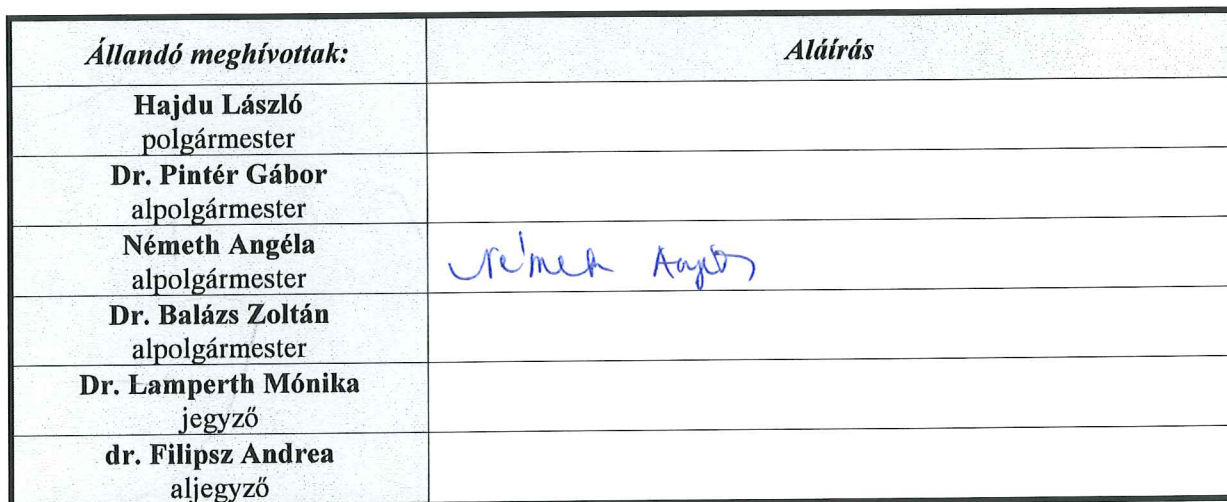 Állandó meghívottak: Aláírás
Hajdu László
polgármester
Dr. Pintér Gábor
alpolgármester
Németh Angéla
alpolgármester
Németh Angéla
Dr. Balázs Zoltán
alpolgármester
Dr. Lamperth Mónika
jegyző
dr. Filipsz Andrea
aljegyző